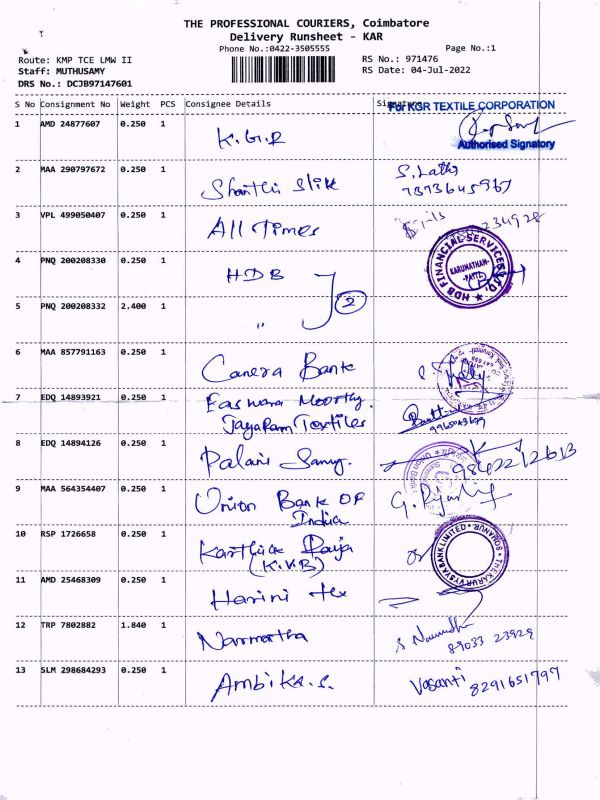 THE PROFESSIONAL COURIERS, Coimbatore
Delivery Runsheet - KAR
Phone No.:0422-3505555
Page No.:1
Route: KMP TCE LMW II
RS No.: 971476
Staff: MUTHUSAMY
RS Date: 04-Jul-2022
DRS No.: DCJB97147601
S No Consignment No Weight PCS Consignee Details Signature
For KGR TEXTILE CORPORATION
1 AMD 24877607 0.250 1 K.G.R
Authorised Signatory
2 MAA 290797672 0.250 1 Shanthi Slik S. Latha
7373645967
3 VPL 499050407 0.250 1 All Times
4 PNQ 200208330 0.250 1 HDB
HDB FINANCIAL SERVICES LTD.
KARUNATHAM-
PATTI
2
5 PNQ 200208332 2.400 1 "
6 MAA 857791163 0.250 1 Canera Bank
7 EDQ 14893921 0.250 1 Easwara Moorthy.
Jayaram Textiles
8 EDQ 14894126 0.250 1 Palani Samy.
9842212613
9 MAA 564354407 0.250 1 Union Bank OF
India
Union Bank
10 RSP 1726658 0.250 1 Karthick Raja
(K.V.B)
THE KARUR VYSYA BANK LIMITED
SOMANUR
11 AMD 25468309 0.250 1 Harini tex
12 TRP 7802882 1.840 1 Narmatha
89033 23929
13 SLM 298684293 0.250 1 Ambika.s. Vasanti 8291651797